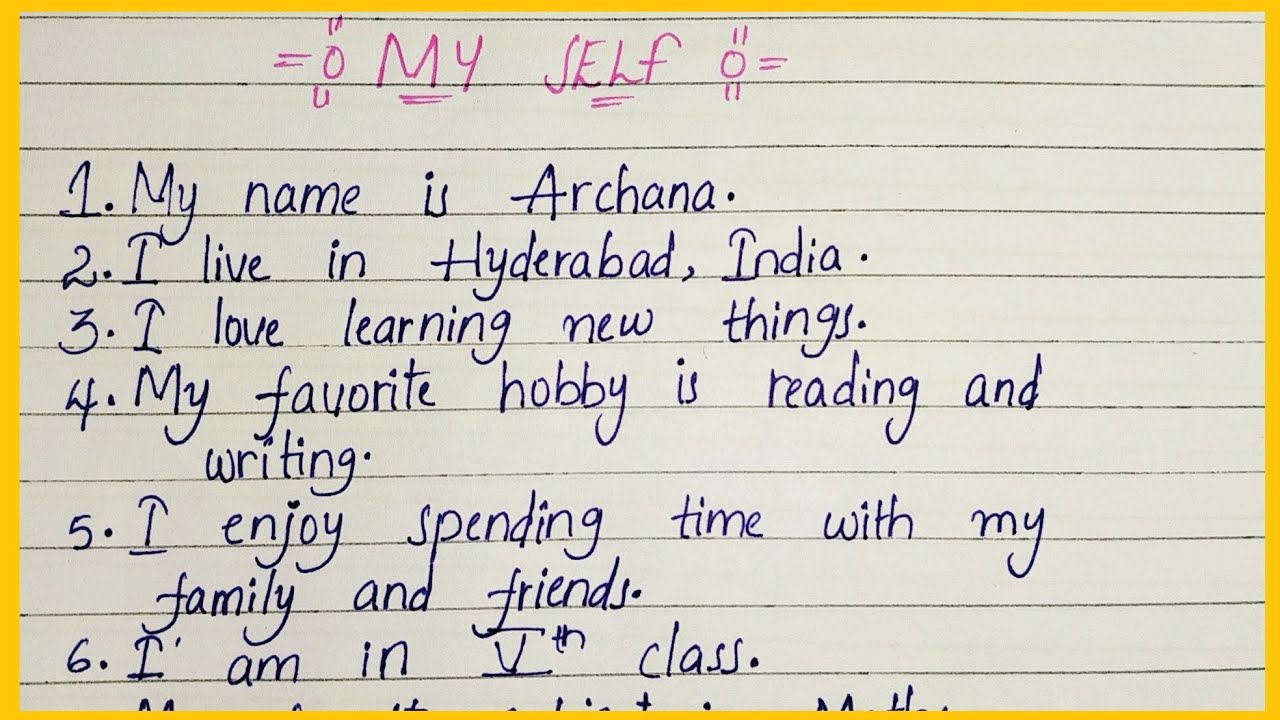 MY SELF
1. My name is Archana.
2. I live in Hyderabad, India.
3. I love learning new things.
4. My favorite hobby is reading and
writing.
5. I enjoy spending time with my
family and friends.
6. I' am in Vth class.